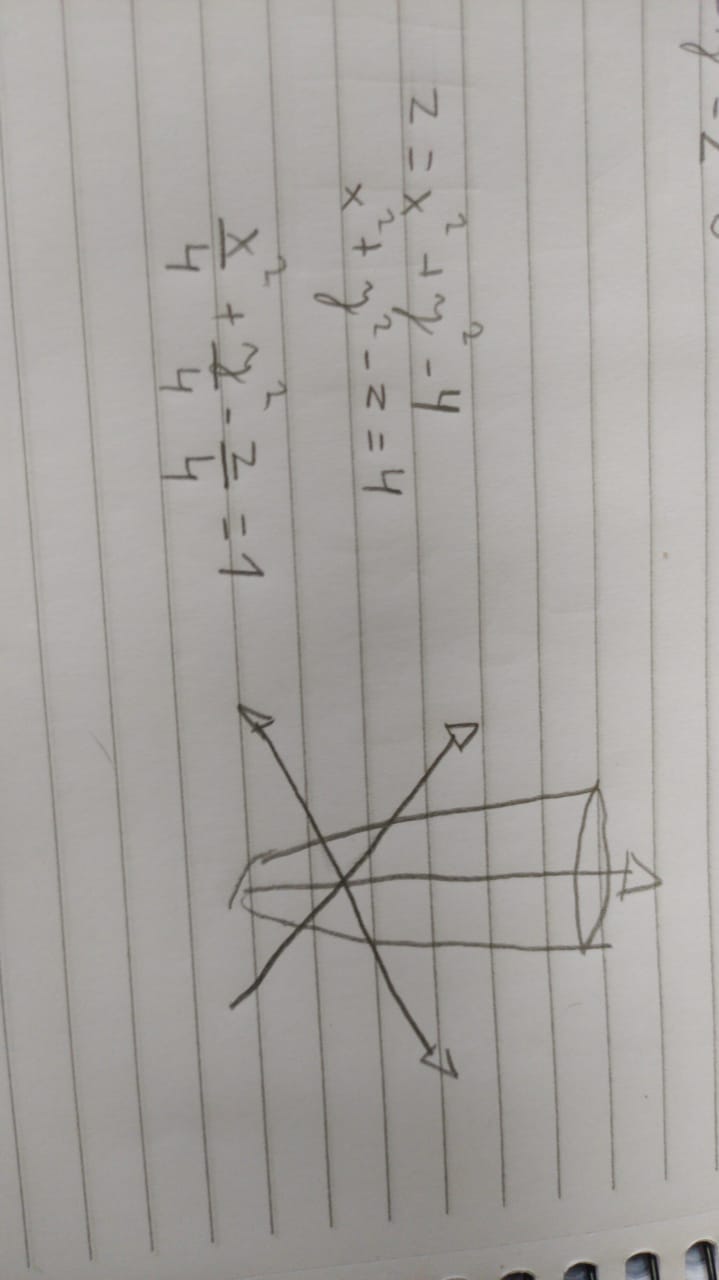 z = x² + y² - 4
x² + y² - z = 4
x²/4 + y²/4 - z/4 = 1